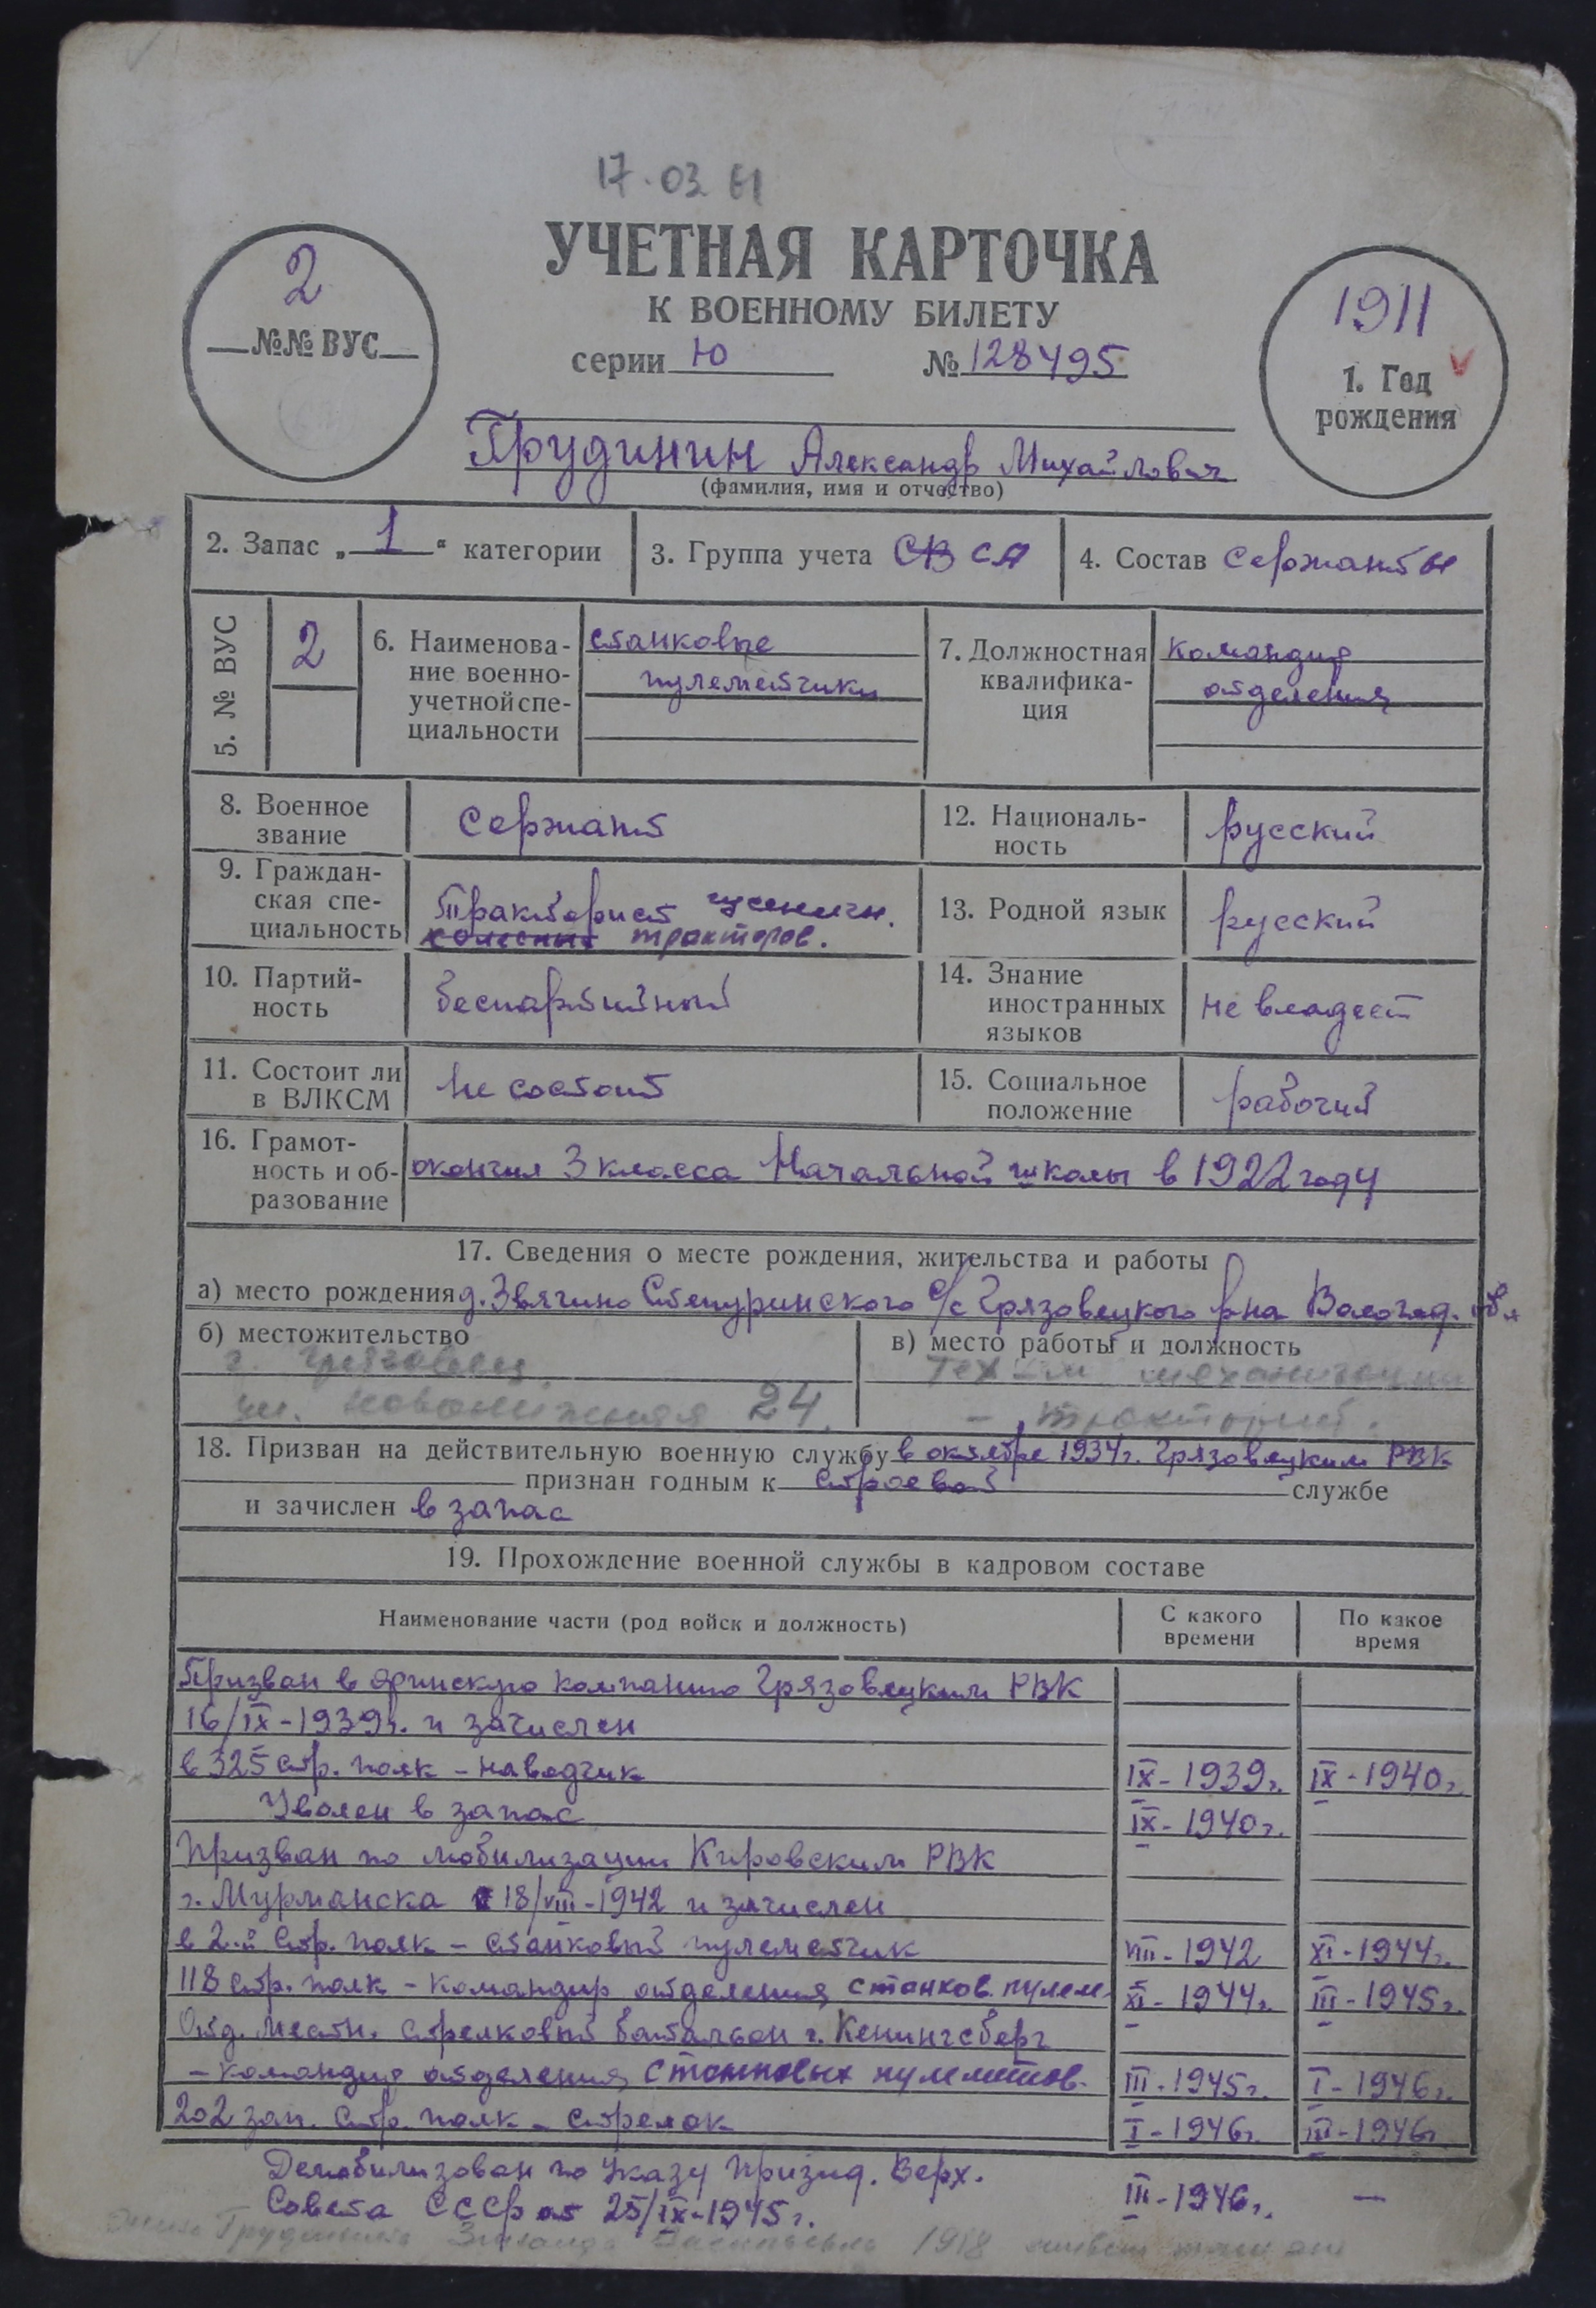 17.03 61
УЧЕТНАЯ КАРТОЧКА
К ВОЕННОМУ БИЛЕТУ
серии Ю № 128495
2
№№ ВУС
1911
1. Год
рождения
Грудинин Александр Михайлович
(фамилия, имя и отчество)
2. Запас „1“ категории
3. Группа учета СВ СА
4. Состав Сержанты
5. № ВУС
2
6. Наименова-
ние военно-
учетной спе-
циальности
станковые
пулеметчики
7. Должностная
квалифика-
ция
Командир
отделения
8. Военное
звание
Сержант
12. Националь-
ность
русский
9. Граждан-
ская спе-
циальность
Тракторист гусеничн.
колесных тракторов.
13. Родной язык
русский
10. Партий-
ность
беспартийный
14. Знание
иностранных
языков
не владеет
11. Состоит ли
в ВЛКСМ
Не состоит
15. Социальное
положение
рабочий
16. Грамот-
ность и об-
разование
окончил 3 класса Начальной школы в 1922 году
17. Сведения о месте рождения, жительства и работы
а) место рождения д. Звягино Степуринского с/с Грязовецкого р-на Вологод. обл
б) местожительство
г. Грязовец
ул. 24.
в) место работы и должность
механизации
- тракторист.
18. Призван на действительную военную службу в октябре 1934г. Грязовецким РВК
признан годным к строевой службе
и зачислен в запас
19. Прохождение военной службы в кадровом составе
Наименование части (род войск и должность)
С какого
времени
По какое
время
Призван в финскую компанию Грязовецким РВК
16/IX-1939г. и зачислен
в 325 стр. полк - наводчик IX-1939г. IX-1940г.
Уволен в запас IX-1940г.
Призван по мобилизации Кировским РВК
г. Мурманска 18/VIII-1942 и зачислен
в 2-й Стр. полк - станковый пулеметчик VIII-1942 XI-1944г.
118 стр. полк - командир отделения станков. пулем. XI-1944г. III-1945г.
Отд. местн. стрелковый батальон г. Кенингсберг
- командир отделения станковых пулеметов. III-1945г. I-1946г.
202 зап. стр. полк - стрелок I-1946г. III-1946г
Демобилизован по Указу Призид. Верх. III-1946г. —
Совета СССР от 25/IX-1945г.
Грудинина 1918